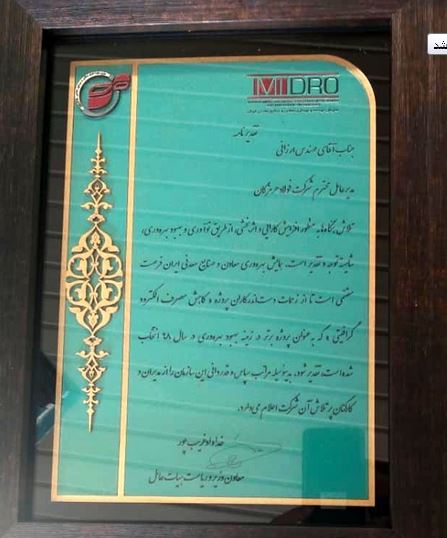 IMIDRO
تقدیرنامه
جناب آقای مهندس ارزانی
مدیرعامل محترم شرکت فولاد هرمزگان
تلاش بنگاه‌ها به منظور افزایش کارایی و اثربخشی، از طریق نوآوری و بهبود بهره‌وری،
شایسته توجه و تقدیر است. همایش بهره‌وری معادن و صنایع معدنی ایران فرصت
مغتنمی است تا از زحمات دست‌اندرکاران پروژه و کاهش مصرف الکترود
گرافیتی و که به‌عنوان پروژه برتر در زمینه بهبود بهره‌وری در سال ۹۸ انتخاب
شده است، تقدیر شود. بدینوسیله مراتب سپاس و قدردانی این سازمان را از مدیران و
کارکنان پر تلاش آن شرکت اعلام می‌دارد.
خداداد غریب پور
معاون وزیر و ریاست هیات عامل